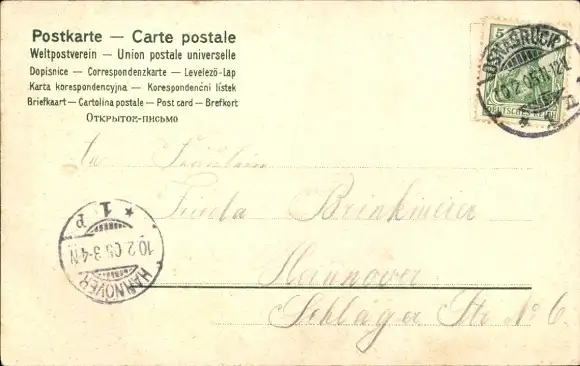 Postkarte — Carte postale
Weltpostverein — Union postale universelle
Dopisnice — Correspondenzkarte — Levelező-Lap
Karta korespondencyjna — Korespondenční lístek
Briefkaart — Cartolina postale — Post card — Brefkort
Открытое-письмо
5
OSNABRÜCK
10.2.05.11-12V.
DEUTSCHES REICH
Fräulein
Frieda Brinkmeier
Hannover
Schläger Str No 6.
HANNOVER
10.2.05.3-4N
* 1 P